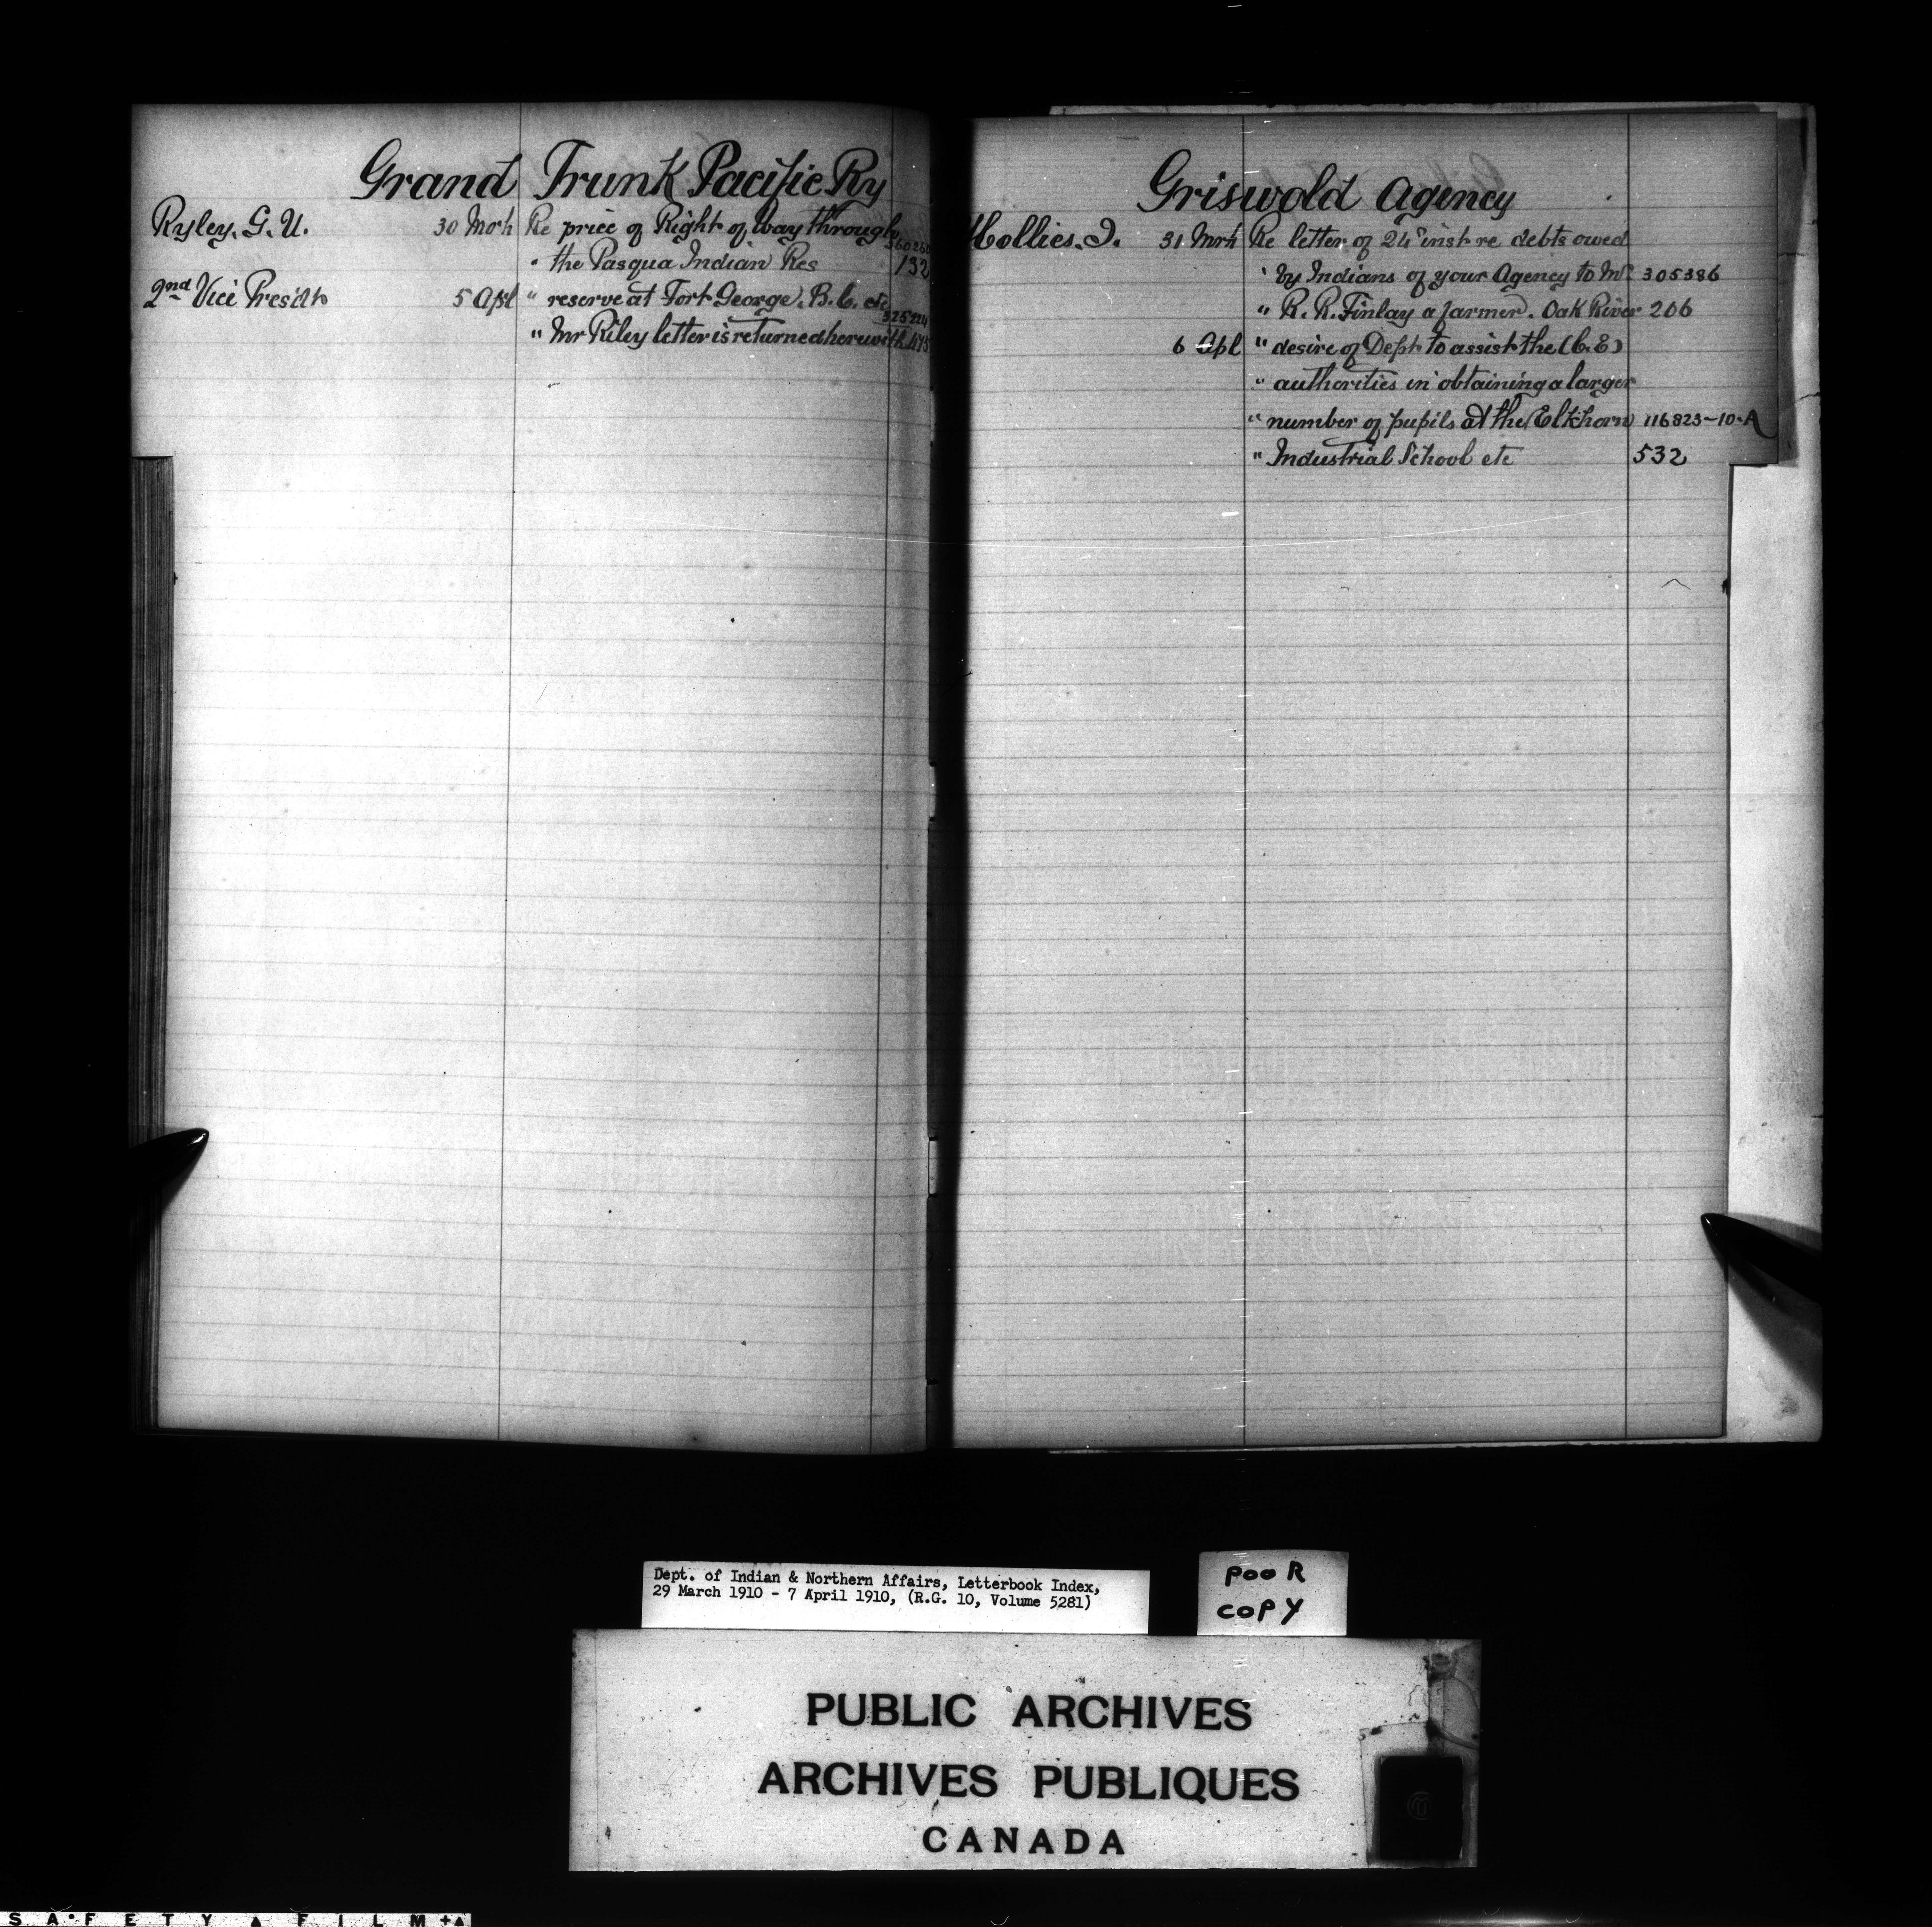 Grand Trunk Pacific Ry
Ryley. G. U. 30 Mrch Re price of Right of Way through 360260
" the Pasqua Indian Res 132
2nd Vice Presidt 5 Apl " reserve at Fort George. B.C. etc 325224
" Mr Riley letter is returned herewith 475
Griswold Agency
Hollies. J. 31 Mrh Re letter of 24" inst re debts owed
" by Indians of your Agency to Mr 305386
" R. R. Finlay a farmer. Oak River 206
6 Apl " desire of Dept to assist the (C.E)
" authorities in obtaining a larger
" number of pupils at the Elkhorn 116823-10-A
" Industrial School etc 532
Dept. of Indian & Northern Affairs, Letterbook Index,
29 March 1910 - 7 April 1910, (R.G. 10, Volume 5281)
POOR
COPY
PUBLIC ARCHIVES
ARCHIVES PUBLIQUES
CANADA
SAFETY FILM